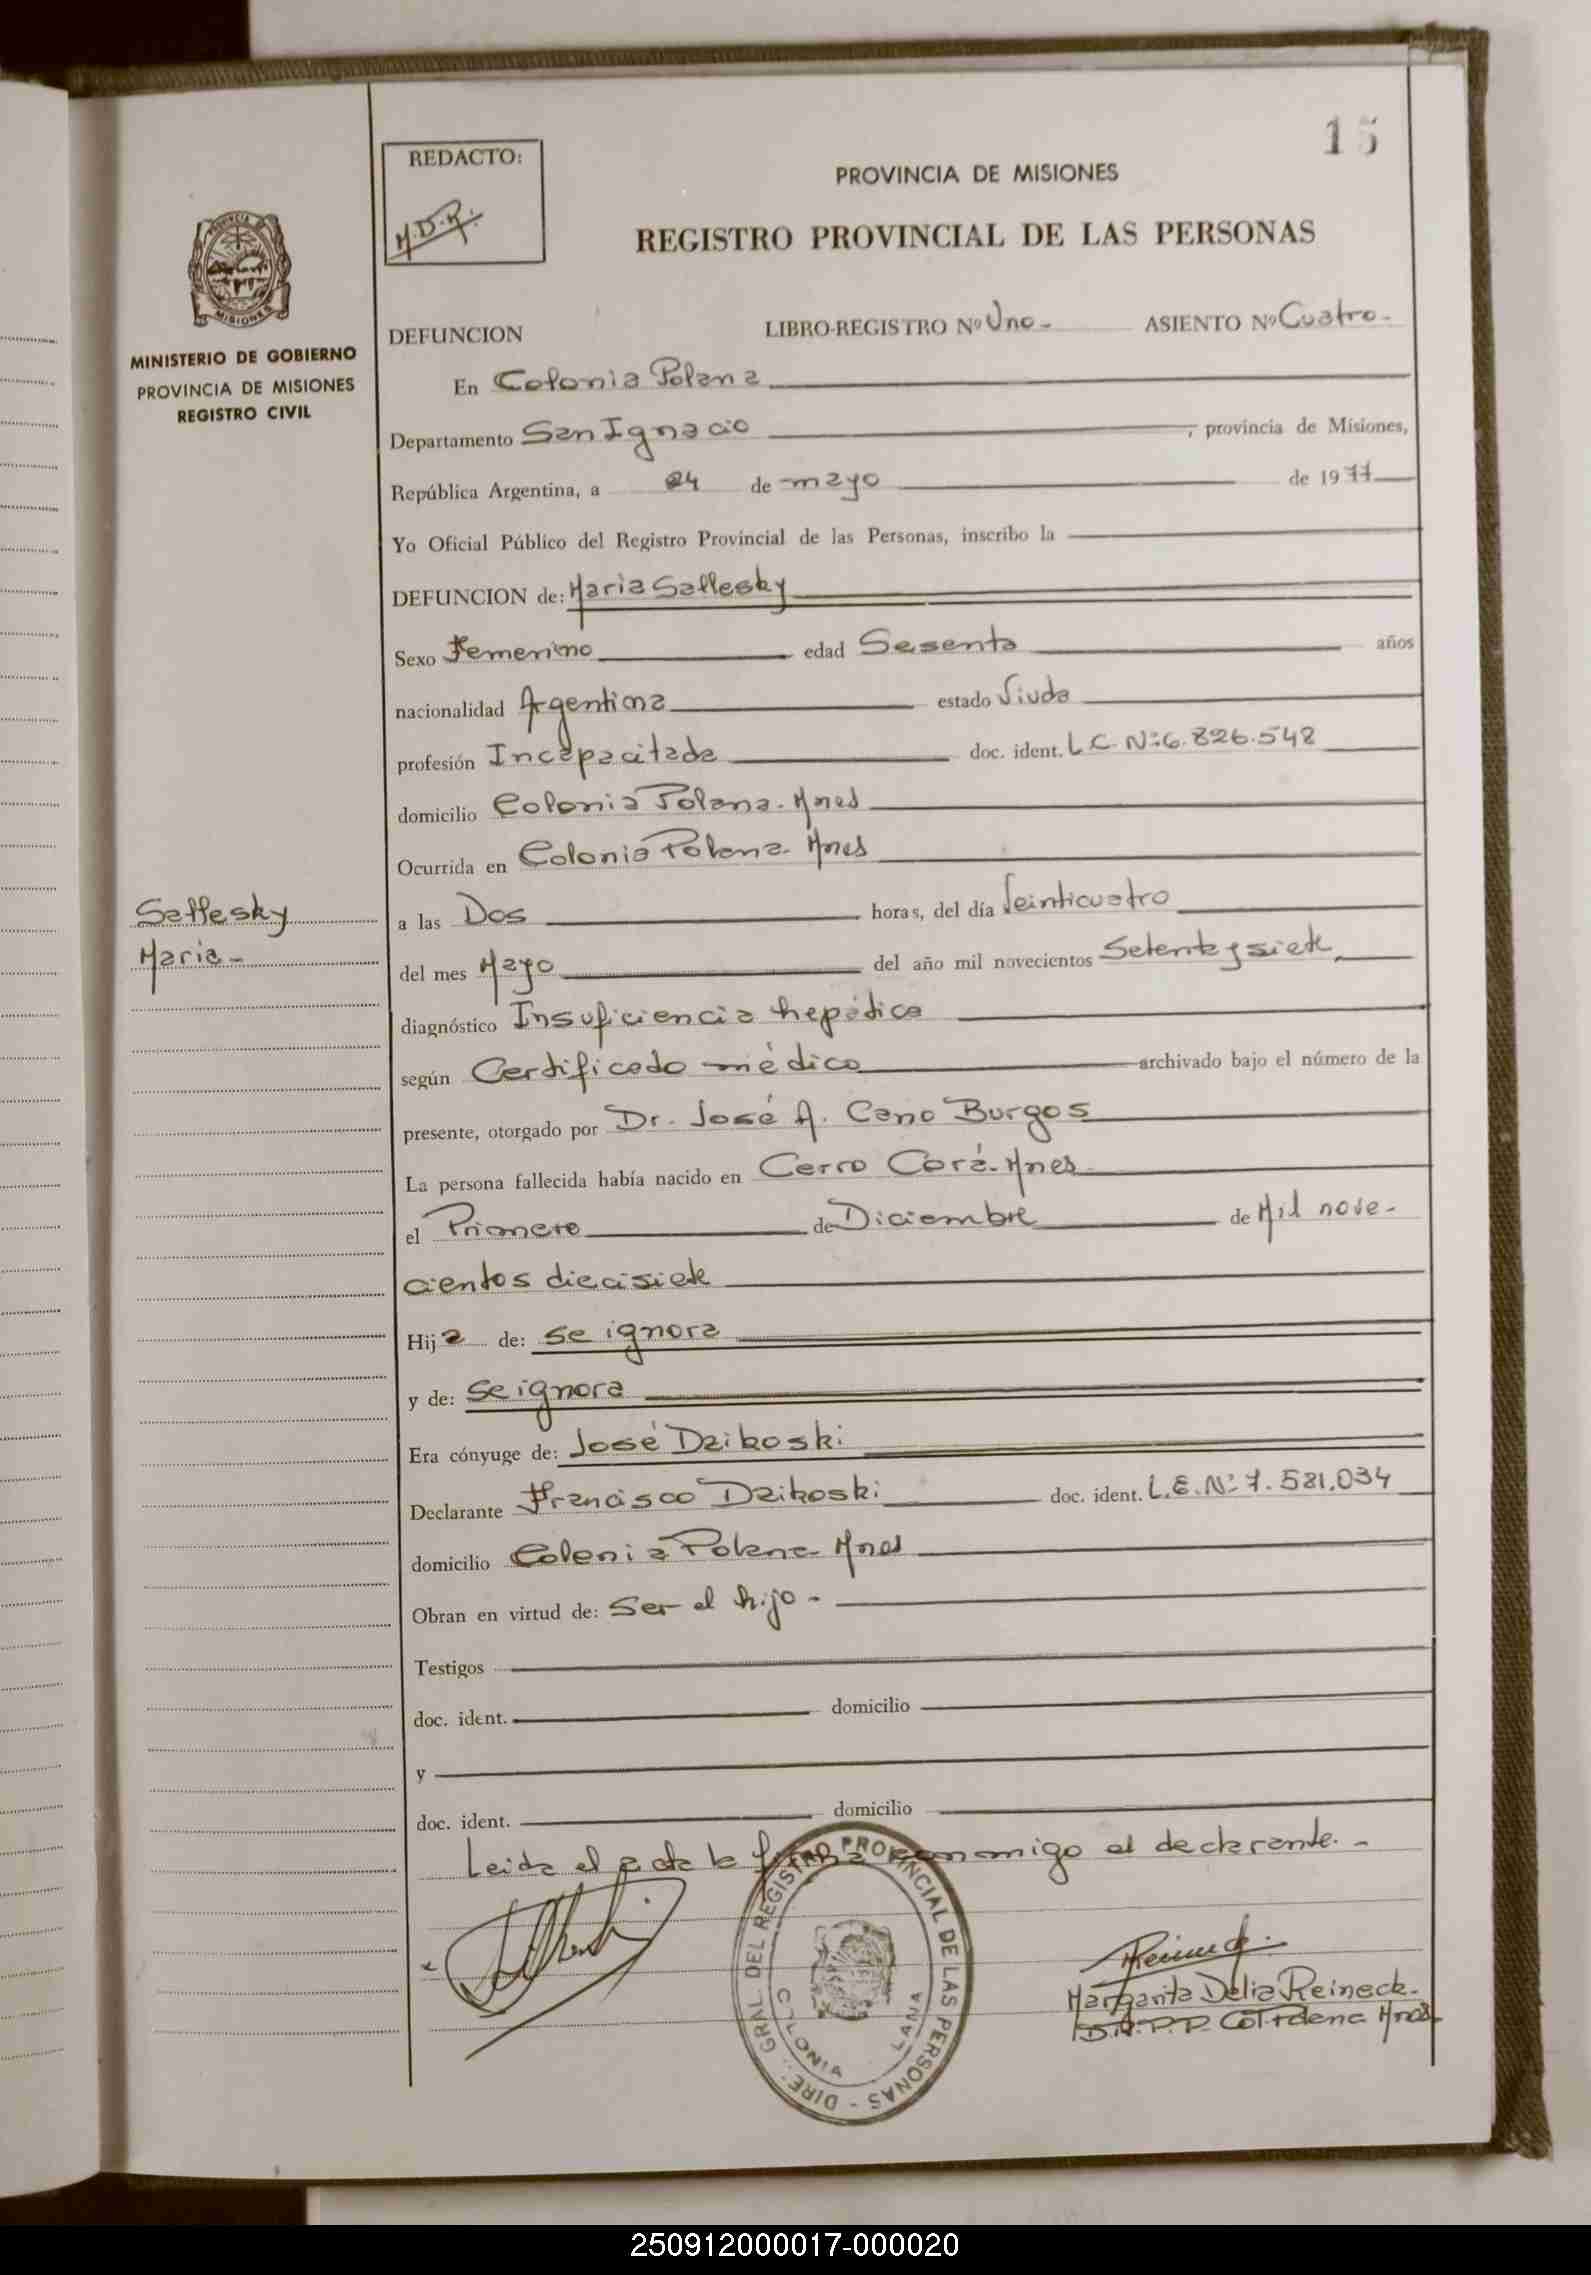 15
REDACTO:
M.D.R.
PROVINCIA DE MISIONES
REGISTRO PROVINCIAL DE LAS PERSONAS
MISIONES
MINISTERIO DE GOBIERNO
PROVINCIA DE MISIONES
REGISTRO CIVIL
DEFUNCION LIBRO-REGISTRO Nº Uno- ASIENTO Nº Cuatro-
En Colonia Polana
Departamento San Ignacio, provincia de Misiones,
República Argentina, a 24 de mayo de 1977
Yo Oficial Público del Registro Provincial de las Personas, inscribo la
DEFUNCION de: Maria Saflesky
Sexo Femenino edad Sesenta años
nacionalidad Argentina estado Viuda
profesión Incapacitada doc. ident. L.C. Nº 6.826.548
domicilio Colonia Polana - Mnes
Ocurrida en Colonia Polana - Mnes
Saflesky
Maria -
a las Dos horas, del día Veinticuatro
del mes Mayo del año mil novecientos Setenta y siete
diagnóstico Insuficiencia hepática
según Certificado médico archivado bajo el número de la
presente, otorgado por Dr. José A. Cano Burgos
La persona fallecida había nacido en Cerro Corá - Mnes
el Primero de Diciembre de Mil nove-
cientos diecisiete
Hija de: se ignora
y de: se ignora
Era cónyuge de: José Dzikoski
Declarante Francisco Dzikoski doc. ident. L.E. Nº 7.521.034
domicilio Colonia Polana - Mnes
Obran en virtud de: Ser el hijo -
Testigos
doc. ident. domicilio
y
doc. ident. domicilio
Leida el acta la firma conmigo el declarante. -
DIREC. GRAL DEL REGISTRO PROVINCIAL DE LAS PERSONAS -
COLONIA LANA
Reineck
Margarita Delia Reineck -
D.R.P.P. Col Polana Mnes
250912000017-000020